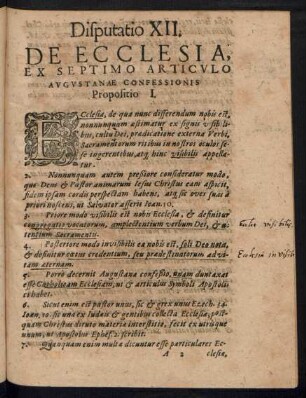 Disputatio XII.
DE ECCLESIA,
EX SEPTIMO ARTICVLO
AVGVSTANAE CONFESSIONIS
Propositio I.
ECclesia, de qua nunc disserendum nobis est,
nonnunquam æstimatur ex signis visibili-
bus, cultu Dei, prædicatione externa Verbi,
Sacramentorum ritibus in nostros oculos se-
se ingerentibus, atq; hinc visibilis appella-
tur.
2. Nonnunquam autem pressiore consideratur modo,
quo Deus & Pastor animarum Iesus Christus eam aspicit,
fidem ipsam cordis perspectam habens, atq; sic oves suas
priori noscens, ut Salvator asserit Ioan. 10.
3. Priore modo visibilis est nobis Ecclesia, & definitur
congregatio vocatorum, amplectentium verbum Dei, & u-
tentium Sacramentis.
4. Posteriore modo invisibilis ea nobis est, soli Deo nota,
& definitur omnium credentium, seu prædestinatorum ad vi-
tam æternam.
5. Porro decernit Augustana confessio, quam duntaxat
esse Catholicam Ecclesiam, ut & articulis Symboli Apostolici
cohæret.
6. Sicut enim est pastor unus, sic & grex unus Ezech. 34.
Ioan. 10. sic una ex Iudæis & gentibus collecta Ecclesia, post-
quam Christus diruto materia interstitio, fecit ex utrisque
unum, ut Apostolus Ephes. 2. scribit.
7. Quanquam enim multæ dicuntur esse particulares Ec-
A 2 clesiæ,